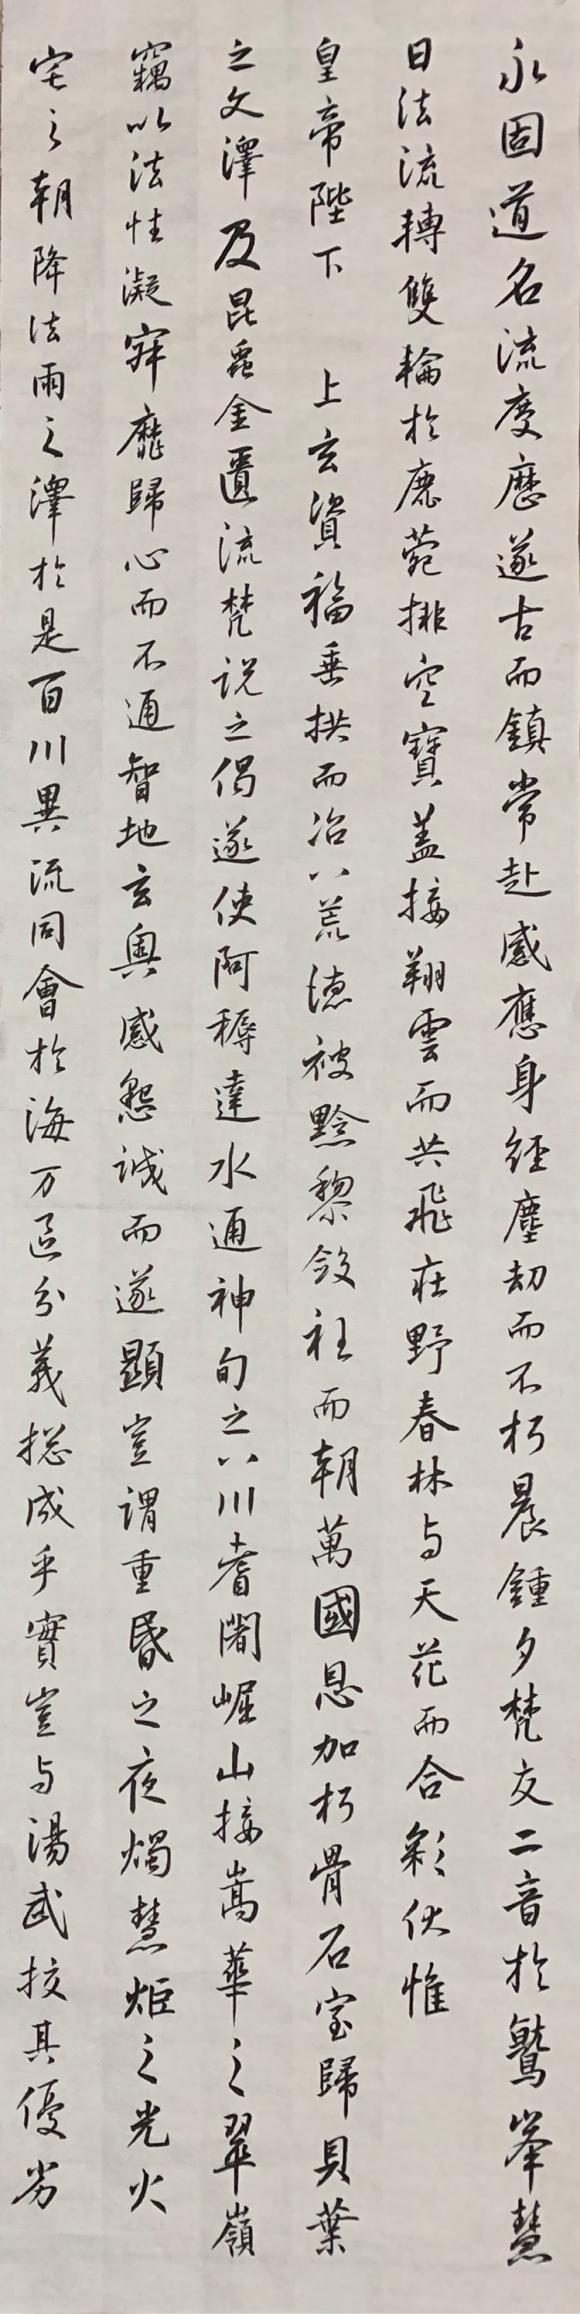 永固道名流慶歷遂古而鎮常赴感應身經塵劫而不朽晨鍾夕梵交二音於鷲峯慧
日法流轉雙輪於鹿菀排空寶蓋接翔雲而共飛莊野春林与天花而合彩伏惟
皇帝陛下 上玄資福垂拱而治八荒德被黔黎斂衽而朝萬國恩加朽骨石室歸貝葉
之文澤及昆蟲金匱流梵説之偈遂使阿耨達水通神甸之八川耆闍崛山接嵩華之翠嶺
竊以法性凝寂靡歸心而不通智地玄奥感懇誠而遂顯豈謂重昏之夜燭慧炬之光火
宅之朝降法雨之澤於是百川異流同會於海万區分義揔成乎實豈与湯武挍其優劣